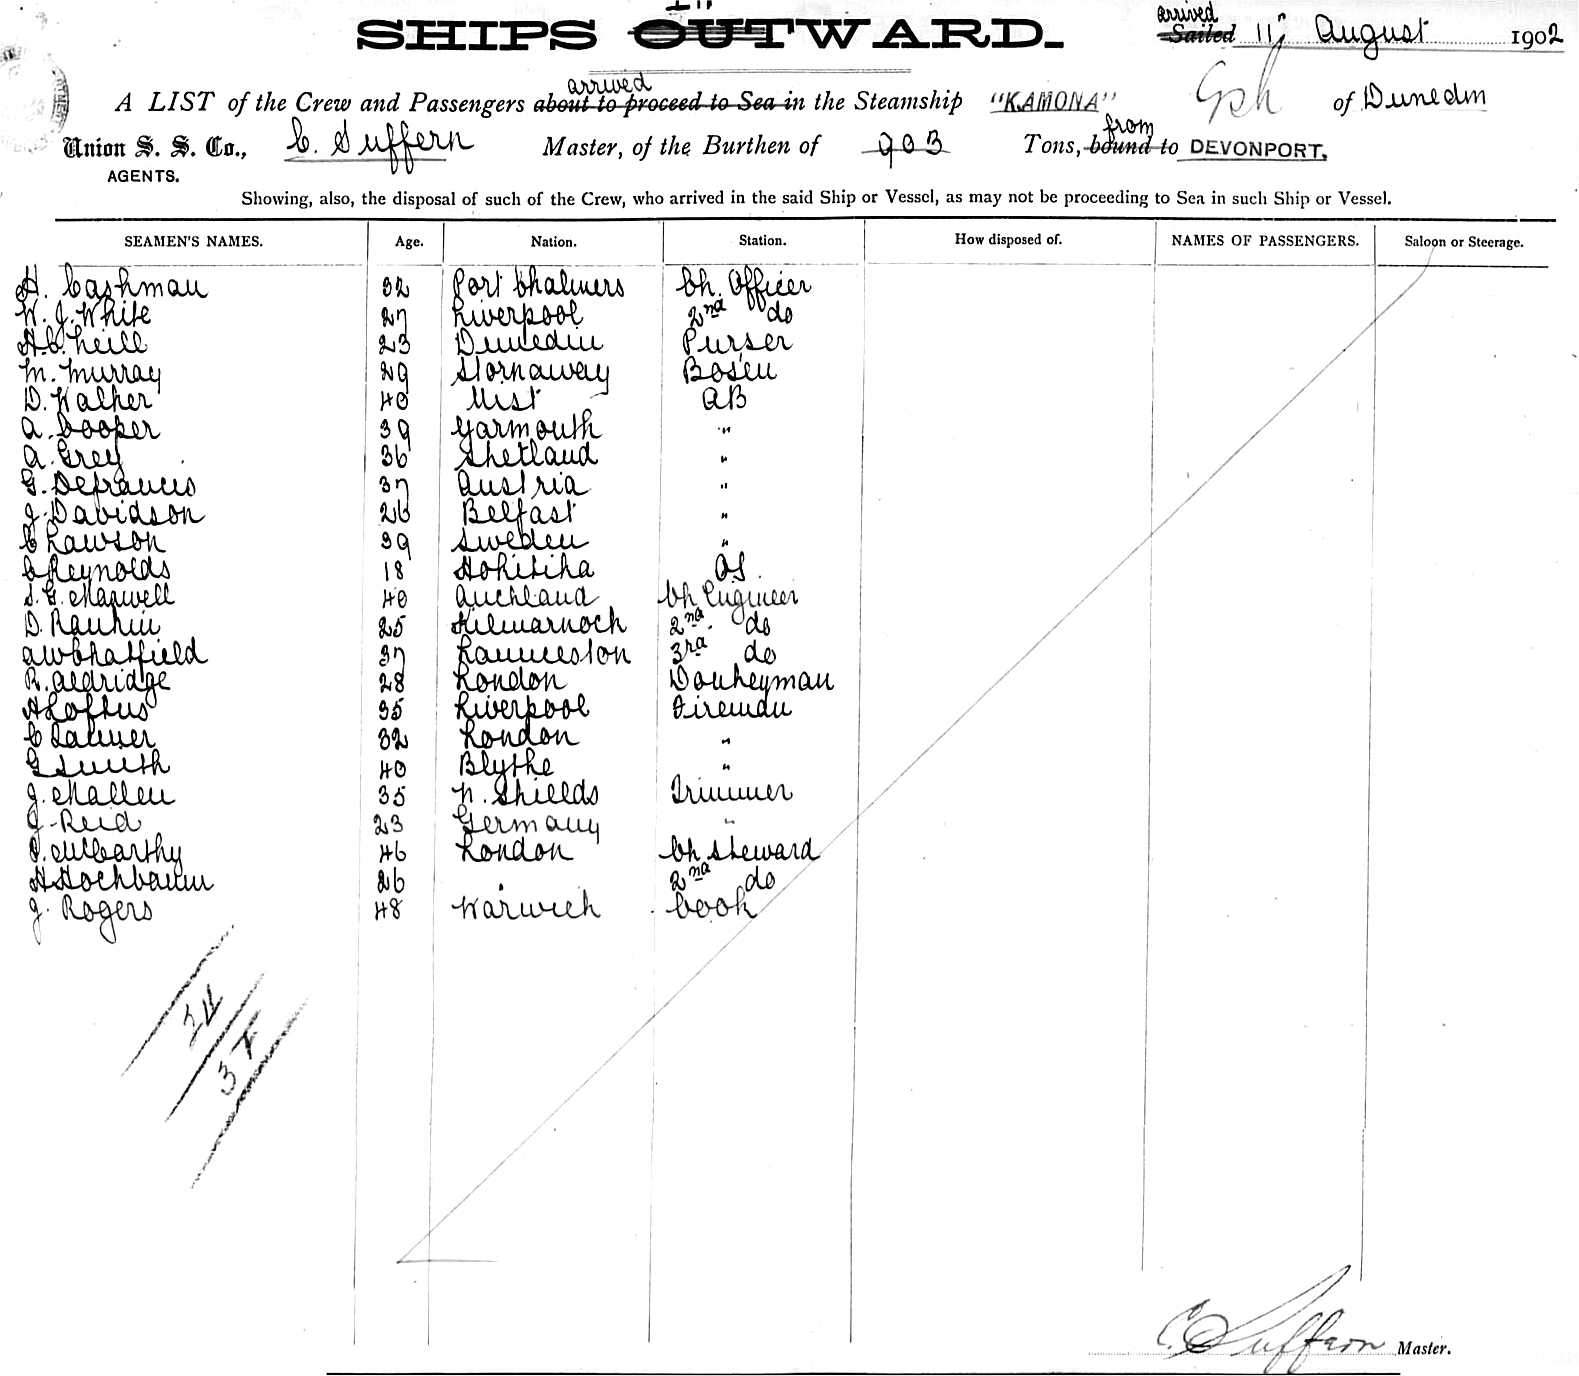 In
SHIPS OUTWARD.
arrived
Sailed 11th August 1902
arrived
A LIST of the Crew and Passengers about to proceed to Sea in the Steamship "KAMONA" of Dunedin
from
Union S. S. Co., C. Suffern Master, of the Burthen of 903 Tons, bound to DEVONPORT.
AGENTS.
Showing, also, the disposal of such of the Crew, who arrived in the said Ship or Vessel, as may not be proceeding to Sea in such Ship or Vessel.
SEAMEN'S NAMES. Age. Nation. Station. How disposed of. NAMES OF PASSENGERS. Saloon or Steerage.
H. Cashman 32 Port Chalmers Ch. Officer
W. J. White 27 Liverpool 2nd do
H. C. Neill 23 Dunedin Purser
M. Murray 29 Stornaway Bosen
D. Walker 40 Uist AB
A. Cooper 39 Yarmouth "
A. Grey 36 Shetland "
G. Defrancis 37 Austria "
J. Davidson 26 Belfast "
C Lawson 39 Sweden "
C Reynolds 18 Hokitika OS.
S. G. Maxwell 40 Auckland Ch Engineer
D. Rankin 25 Kilmarnock 2nd do
A W Chatfield 37 Launceston 3rd do
R. Aldridge 28 London Donkeyman
H Loftus 35 Liverpool Fireman
C 32 London "
G Smith 40 Blythe "
J. Mallen 35 N. Shields Trimmer
J Reid 23 Germany "
J. McCarthy 46 London Ch Steward
H Hochbaum 26 " 2nd do
J. Rogers 48 Warwick Cook
C. Suffern Master.